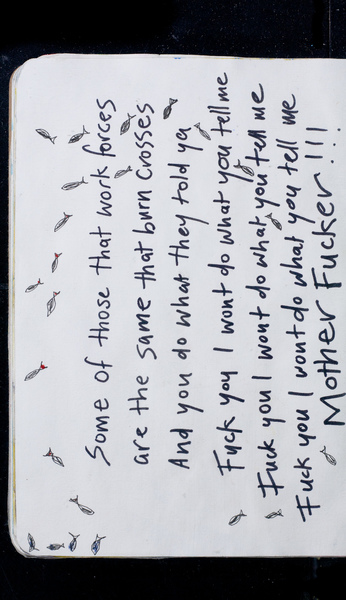 Some of those that work forces
are the same that burn Crosses
And you do what they told ya
Fuck you I wont do what you tell me
Fuck you I wont do what you tell me
Fuck you I wont do what you tell me
Mother Fucker!!!